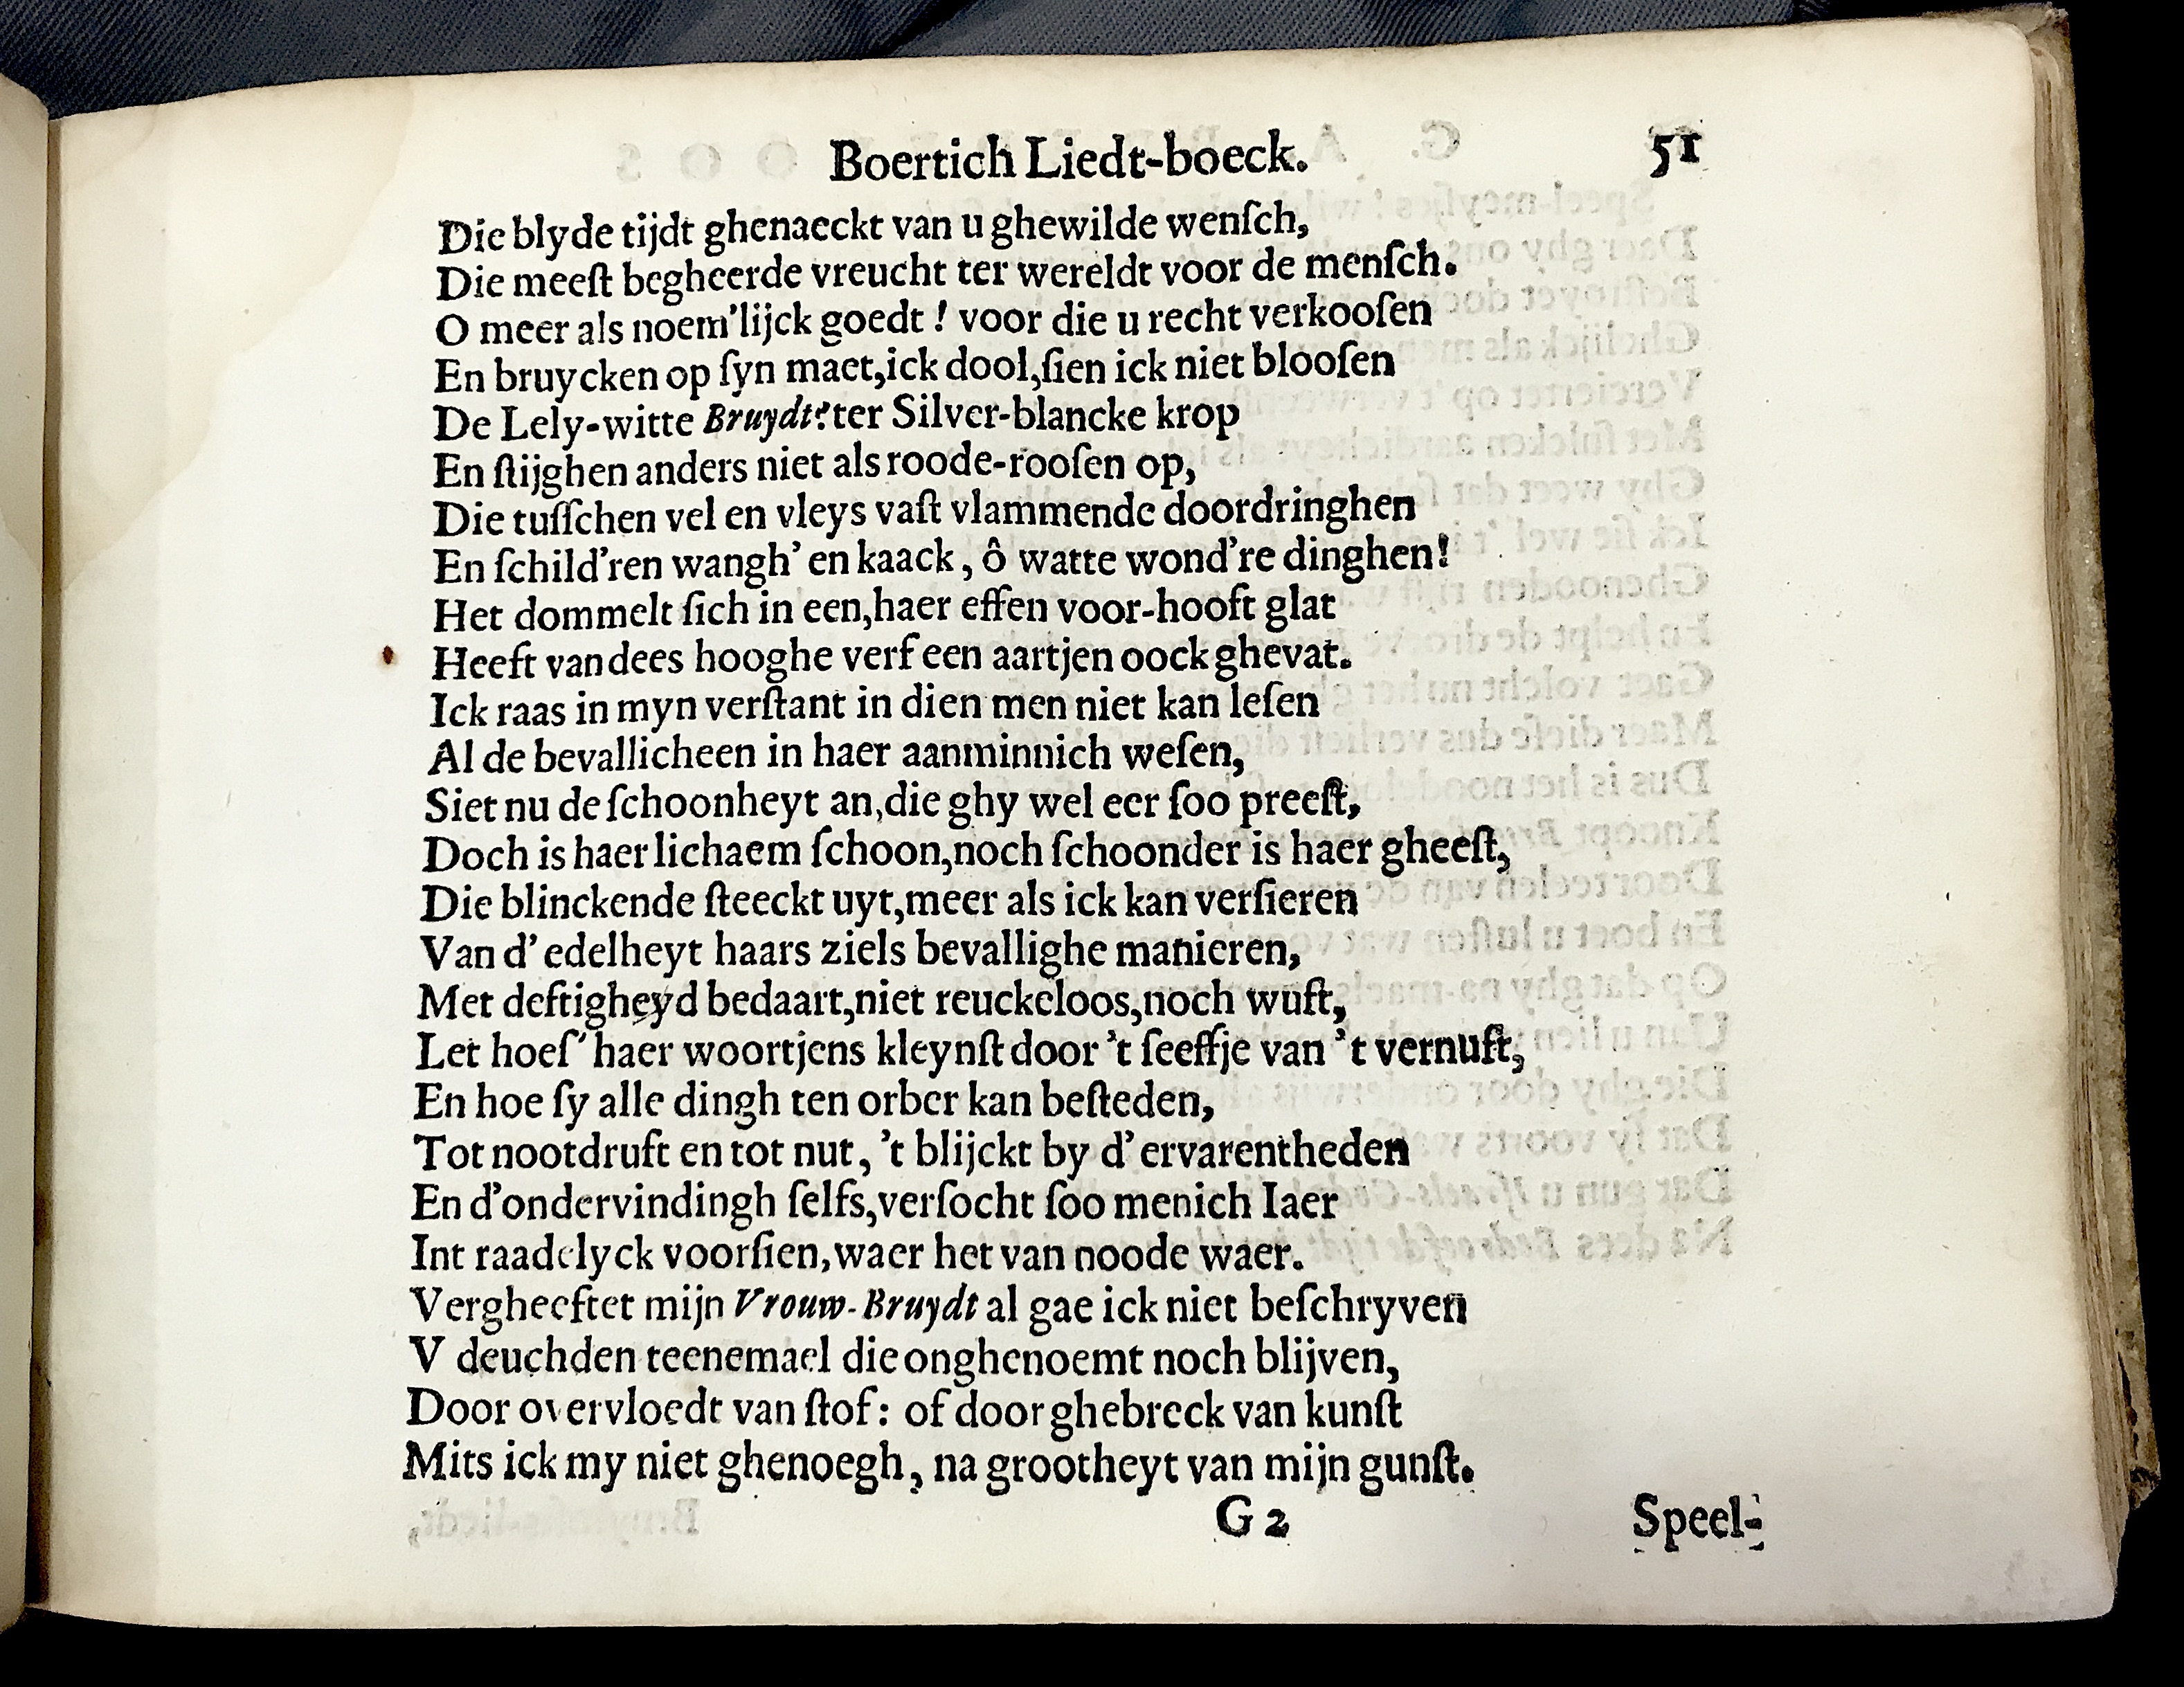 Boertich Liedt-boeck. 51
Die blyde tijdt ghenaeckt van u ghewilde wenſch,
Die meeſt begheerde vreucht ter wereldt voor de menſch.
O meer als noem'lijck goedt ! voor die u recht verkooſen
En bruycken op ſyn maet,ick dool,ſien ick niet blooſen
De Lely-witte Bruydt? ter Silver-blancke krop
En ſtijghen anders niet als roode-rooſen op,
Die tuſſchen vel en vleys vaſt vlammende doordringhen
En ſchild'ren wangh' en kaack, ô watte wond're dinghen!
Het dommelt ſich in een,haer effen voor-hooft glat
Heeft van dees hooghe verf een aartjen oock ghevat.
Ick raas in myn verſtant in dien men niet kan leſen
Al de bevallicheen in haer aanminnich weſen,
Siet nu de ſchoonheyt an,die ghy wel eer ſoo preeſt,
Doch is haer lichaem ſchoon,noch ſchoonder is haer gheeſt,
Die blinckende ſteeckt uyt,meer als ick kan verſieren
Van d' edelheyt haars ziels bevallighe manieren,
Met deftigheyd bedaart,niet reuckeloos,noch wuft,
Let hoeſ' haer woortjens kleynſt door 't ſeeffje van 't vernuft,
En hoe ſy alle dingh ten orber kan beſteden,
Tot nootdruft en tot nut, 't blijckt by d' ervarentheden
En d'ondervindingh ſelfs,verſocht ſoo menich Iaer
Int raadelyck voorſien,waer het van noode waer.
Vergheeftet mijn Vrouw-Bruydt al gae ick niet beſchryven
V deuchden teenemael die onghenoemt noch blijven,
Door overvloedt van ſtof: of door ghebreck van kunſt
Mits ick my niet ghenoegh, na grootheyt van mijn gunſt.
G 2 Speel-